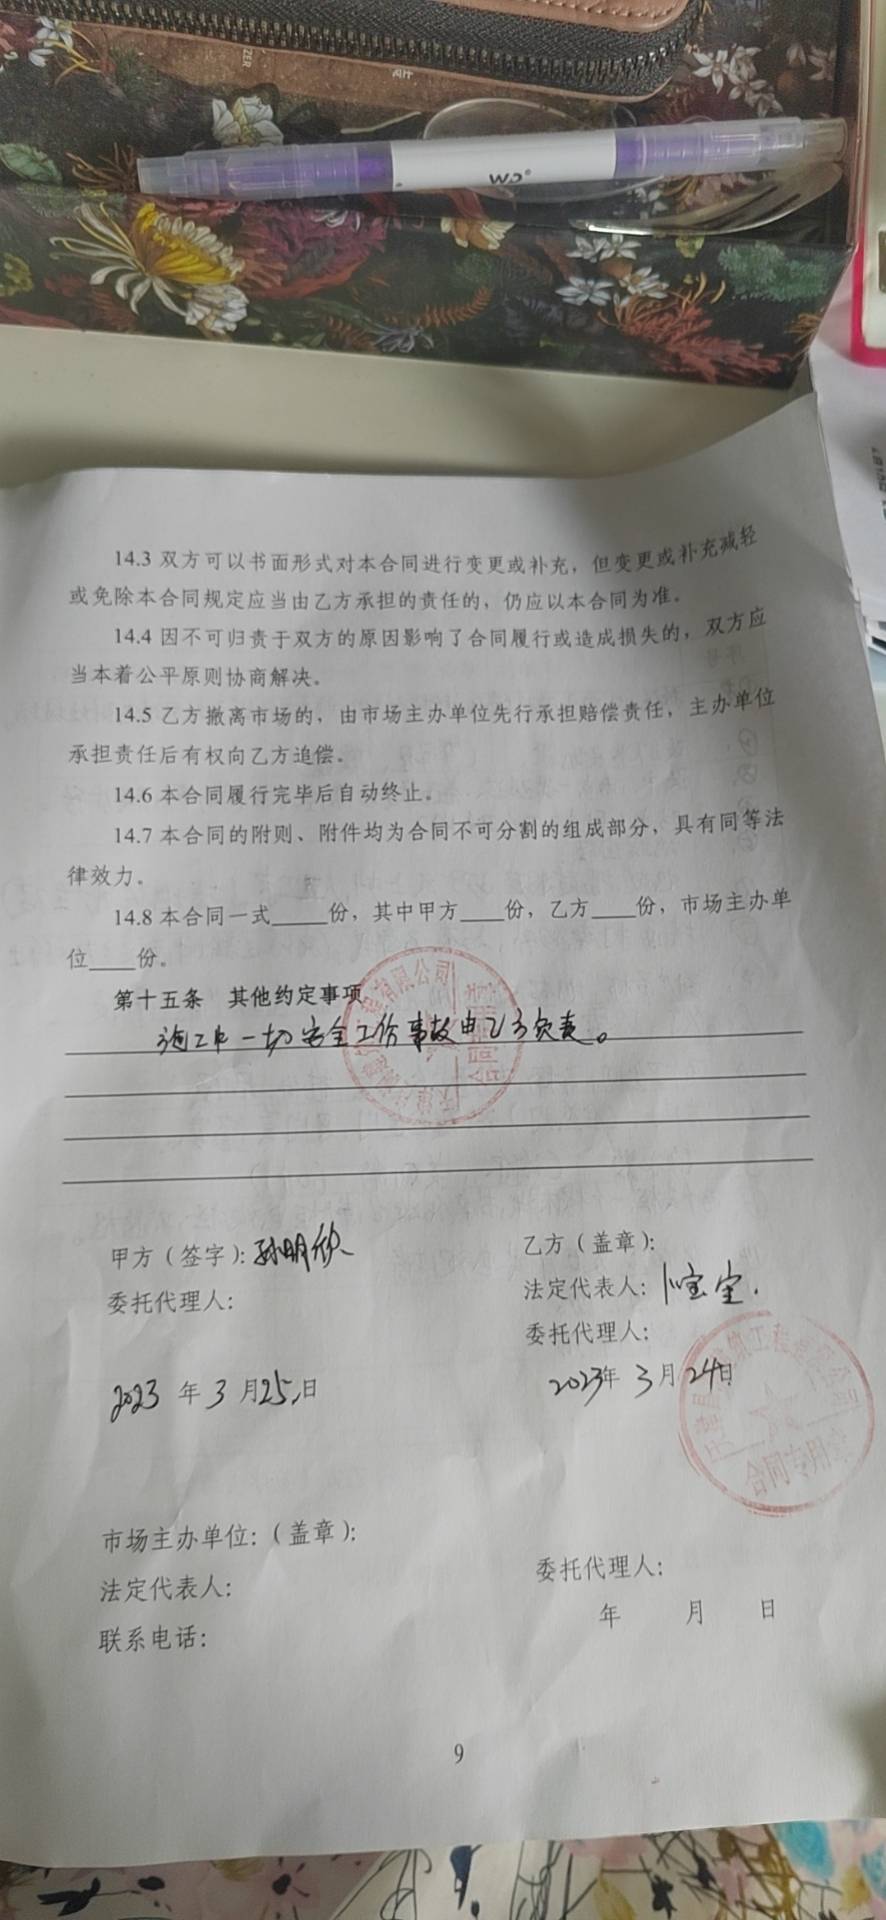 W2
14.3 双方可以书面形式对本合同进行变更或补充，但变更或补充减轻
或免除本合同规定应当由乙方承担的责任的，仍应以本合同为准。
14.4 因不可归责于双方的原因影响了合同履行或造成损失的，双方应
当本着公平原则协商解决。
14.5 乙方撤离市场的，由市场主办单位先行承担赔偿责任，主办单位
承担责任后有权向乙方追偿。
14.6 本合同履行完毕后自动终止。
14.7 本合同的附则、附件均为合同不可分割的组成部分，具有同等法
律效力。
14.8 本合同一式____份，其中甲方____份，乙方____份，市场主办单
位____份。
第十五条 其他约定事项
施工中一切安全工伤事故由乙方负责。
甲方（签字）：孙明欣
委托代理人：
2023 年 3 月 25 日
乙方（盖章）：
法定代表人：
委托代理人：
2023年 3 月 24日
工程有限公司
合同专用章
市场主办单位：（盖章）：
法定代表人：
联系电话：
委托代理人：
年 月 日
9